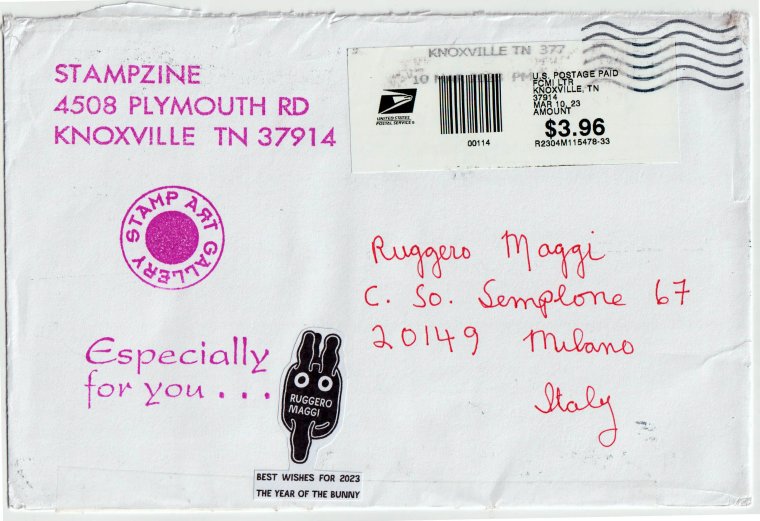 STAMPZINE
4508 PLYMOUTH RD
KNOXVILLE TN 37914
KNOXVILLE TN 377
10 PM
UNITED STATES
POSTAL SERVICE
00114
U.S. POSTAGE PAID
FCMI LTR
KNOXVILLE, TN
37914
MAR 10, 23
AMOUNT
$3.96
R2304M115478-33
STAMP ART GALLERY
Ruggero Maggi
C. So. Semplone 67
20149 Milano
Italy
Especially
for you . . .
RUGGERO
MAGGI
BEST WISHES FOR 2023
THE YEAR OF THE BUNNY